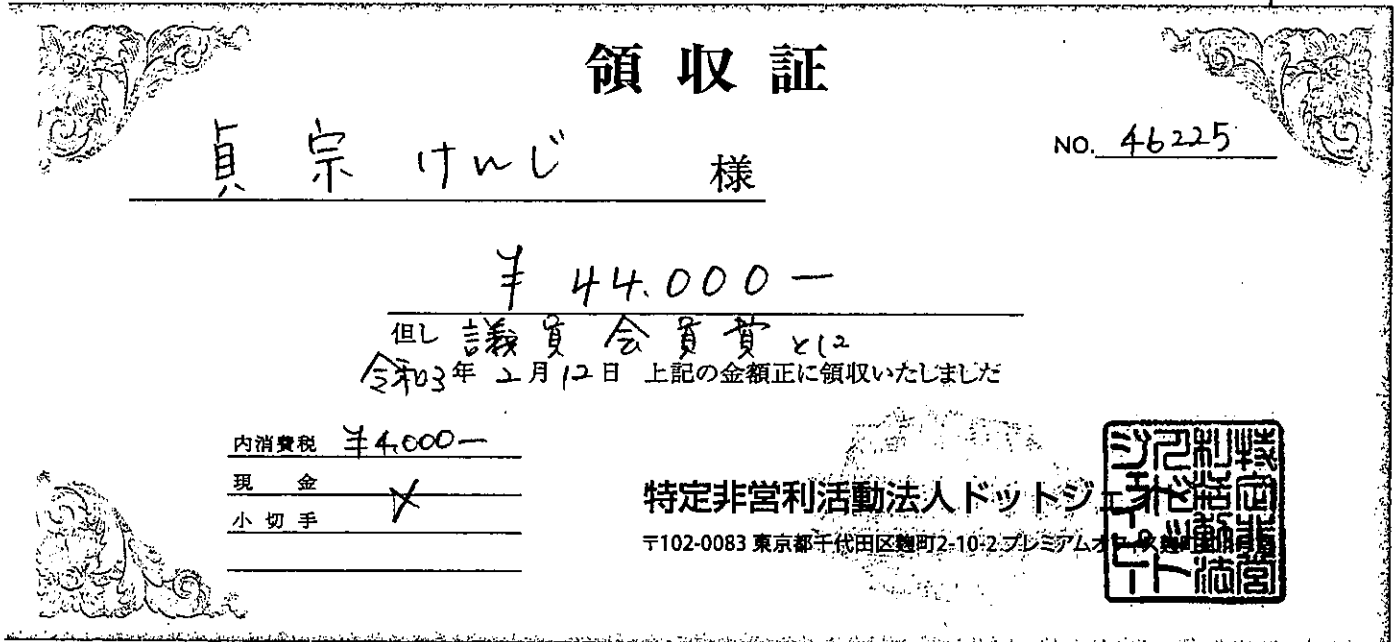 領収証
NO. 46225
貞宗けんじ 様
¥44.000-
但し 議員会員費として
令和3年2月12日 上記の金額正に領収いたしました
内消費税 ¥4,000-
現金
小切手
特定非営利活動法人ドットジェイ
〒102-0083 東京都千代田区麹町2-10-2 プレミアムオフィス麹町